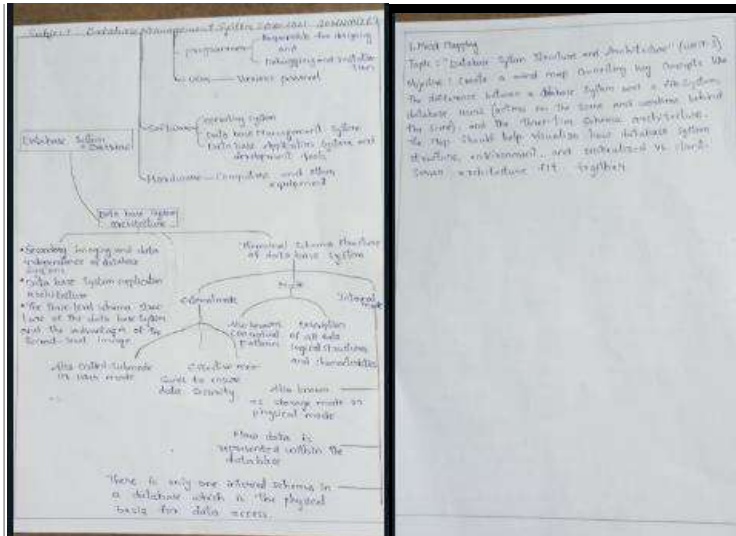 Subject: Database Management System
Programmer
Responsible for designing
and
Debugging and
User
Software
operating system
Data base Management System
Data base Application System and
development tools
Hardware
Computers and other
equipment
Database System
Data base System
architecture
• Secondary imaging and data
independence of database
System
• Data base System application
architecture
• The three level schema struc
ture of the data base System
and the advantages of the
Second-level image
schema structure
of data base system
External mode
Internal
mode
Also known
Conceptual
pattern
Description
of all data
logical structures
and characteristics
Also called Submode
or user mode
Effective
to ensure
data security
Also known
as storage mode or
physical mode
How data is
represented within the
data base
There is only one internal schema in
a database which is the physical
basis for data access.
1. Mind Mapping
Topic: "Database System Structure and Architecture" (Unit-1)
Objective: Create a mind map connecting key concepts like
The difference between a database System and a file System,
database users (actors on the scene and workers behind
the scene), and the three-tier Schema architecture.
The Map should help visualize how database System
structure, environment, and centralized vs client-
Server architecture fit together